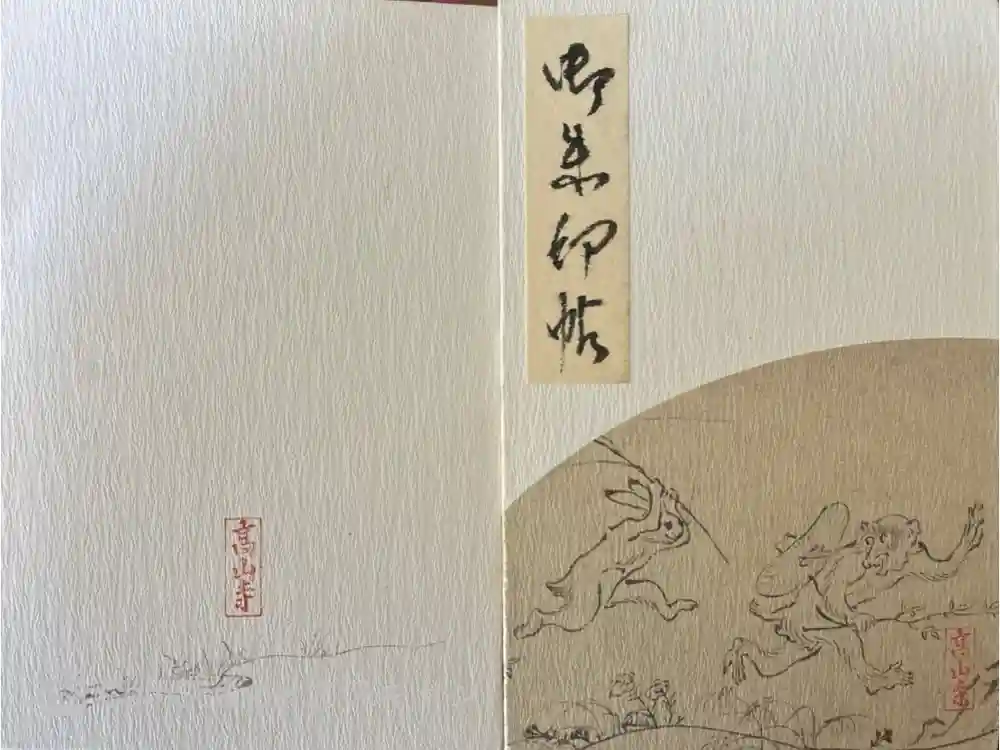 御朱印帖
高山寺
高山寺